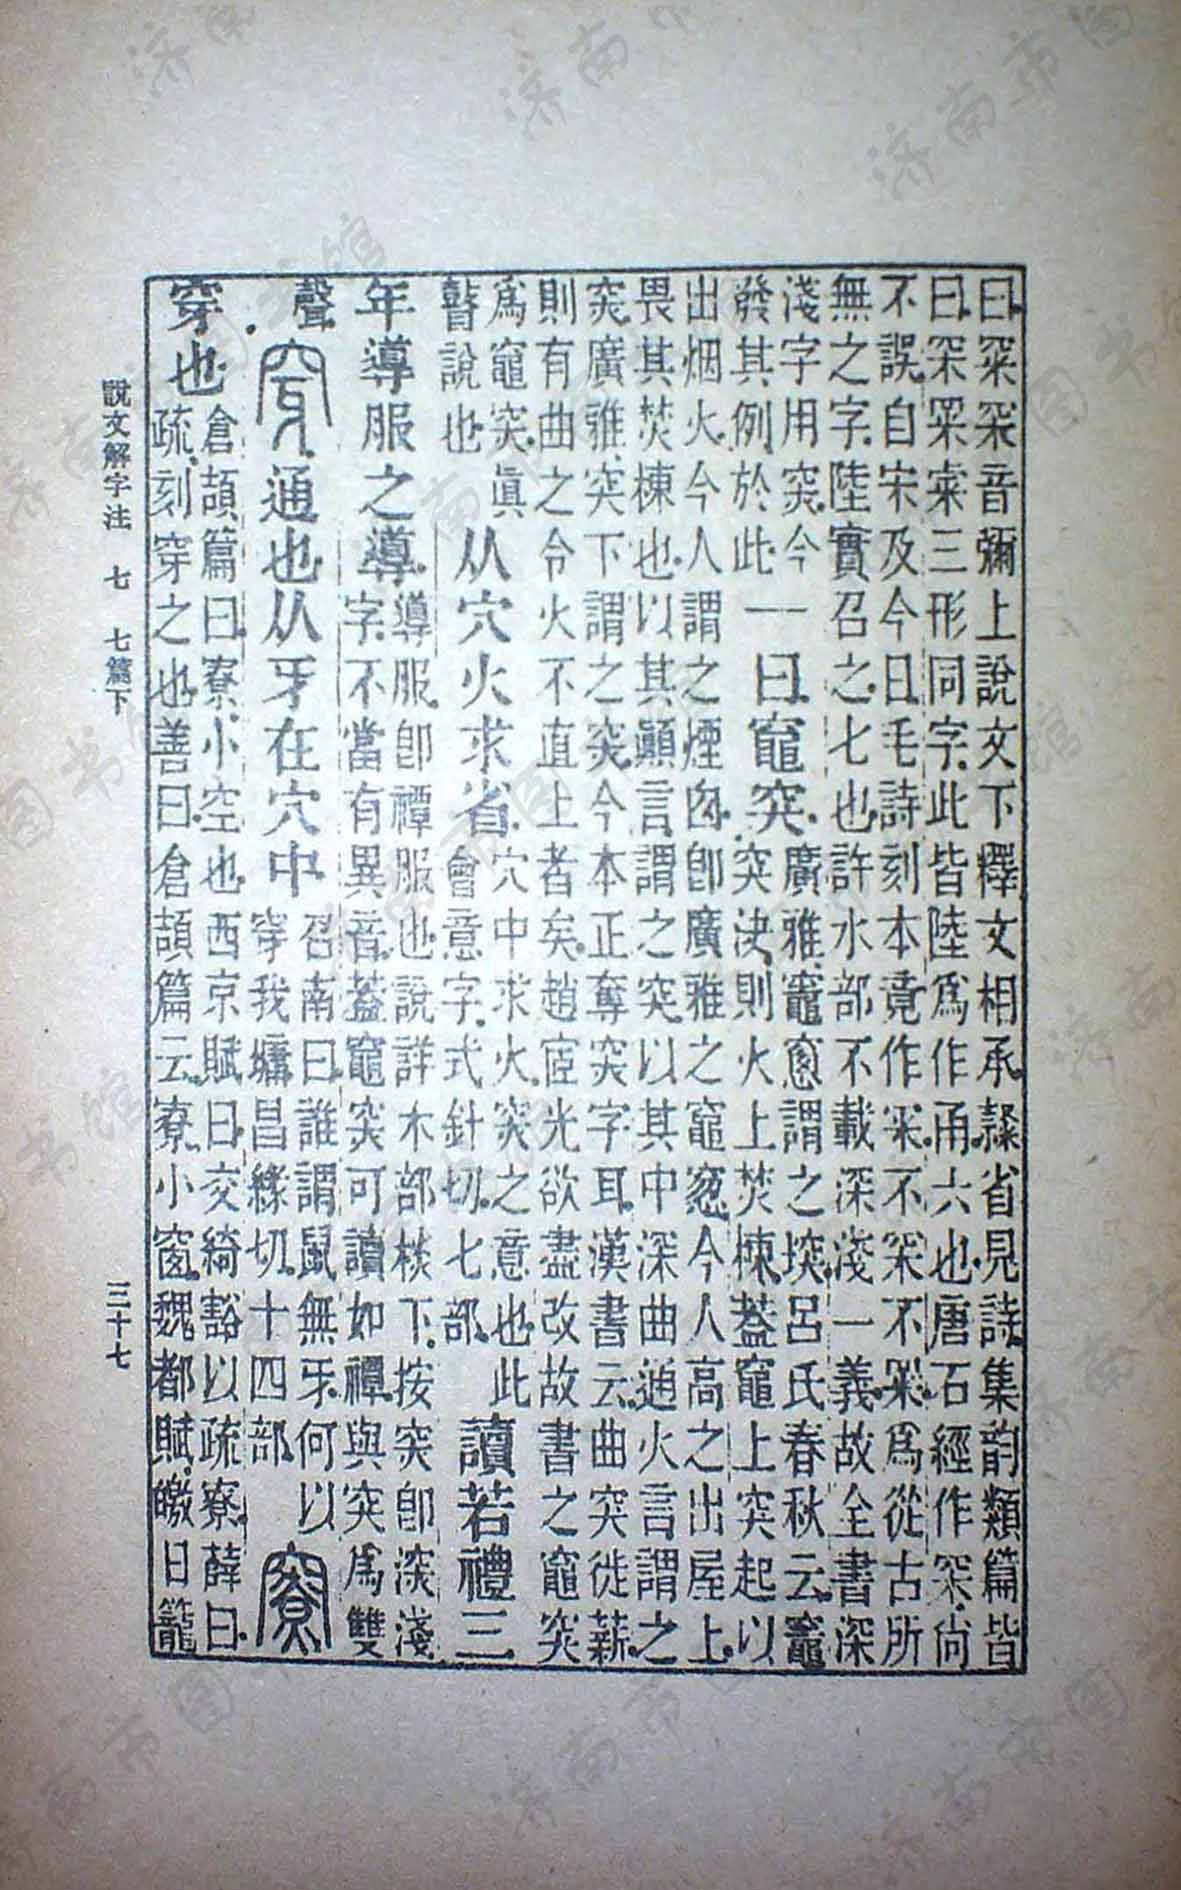 曰冞罙音彌上說文下釋文相承隸省見詩集韵類篇皆
曰罙冞𥥍三形同字此皆陸爲作甬六也唐石經作罙尙
不誤自宋及今日毛詩刻本竟作冞不罙不冞爲從古所
無之字陸實召之七也許水部不載深淺一義故全書深
淺字用𥥍今
發其例於此
一曰竈突
廣雅竈窻謂之堗呂氏春秋云竈
突決則火上焚棟葢竈上突起以
出烟火今人謂之煙囪卽廣雅之竈窻今人高之出屋上
畏其焚棟也以其顚言謂之突以其中深曲通火言謂之
𥥍廣雅突下謂之𥥍今本正奪𥥍字耳漢書云曲突徙薪
則有曲之令火不直上者矣趙宧光欲盡改故書之竈突
爲竈𥥍眞
瞽說也
从穴火求省
穴中求火𥥍之意也此
會意字式針切七部
讀若禮三
年導服之導
導服卽禫服也說詳木部棪下按𥥍卽深淺
字不當有異音葢竈𥥍可讀如禫與突爲雙
聲
穿通也从牙在穴中
召南曰誰謂鼠無牙何以
穿我墉昌緣切十四部
寮
穿也
倉頡篇曰寮小空也西京賦曰交綺豁以疏寮薛曰
疏刻穿之也善曰倉頡篇云寮小窗魏都賦皦日籠
說文解字注 七 七篇下
三十七